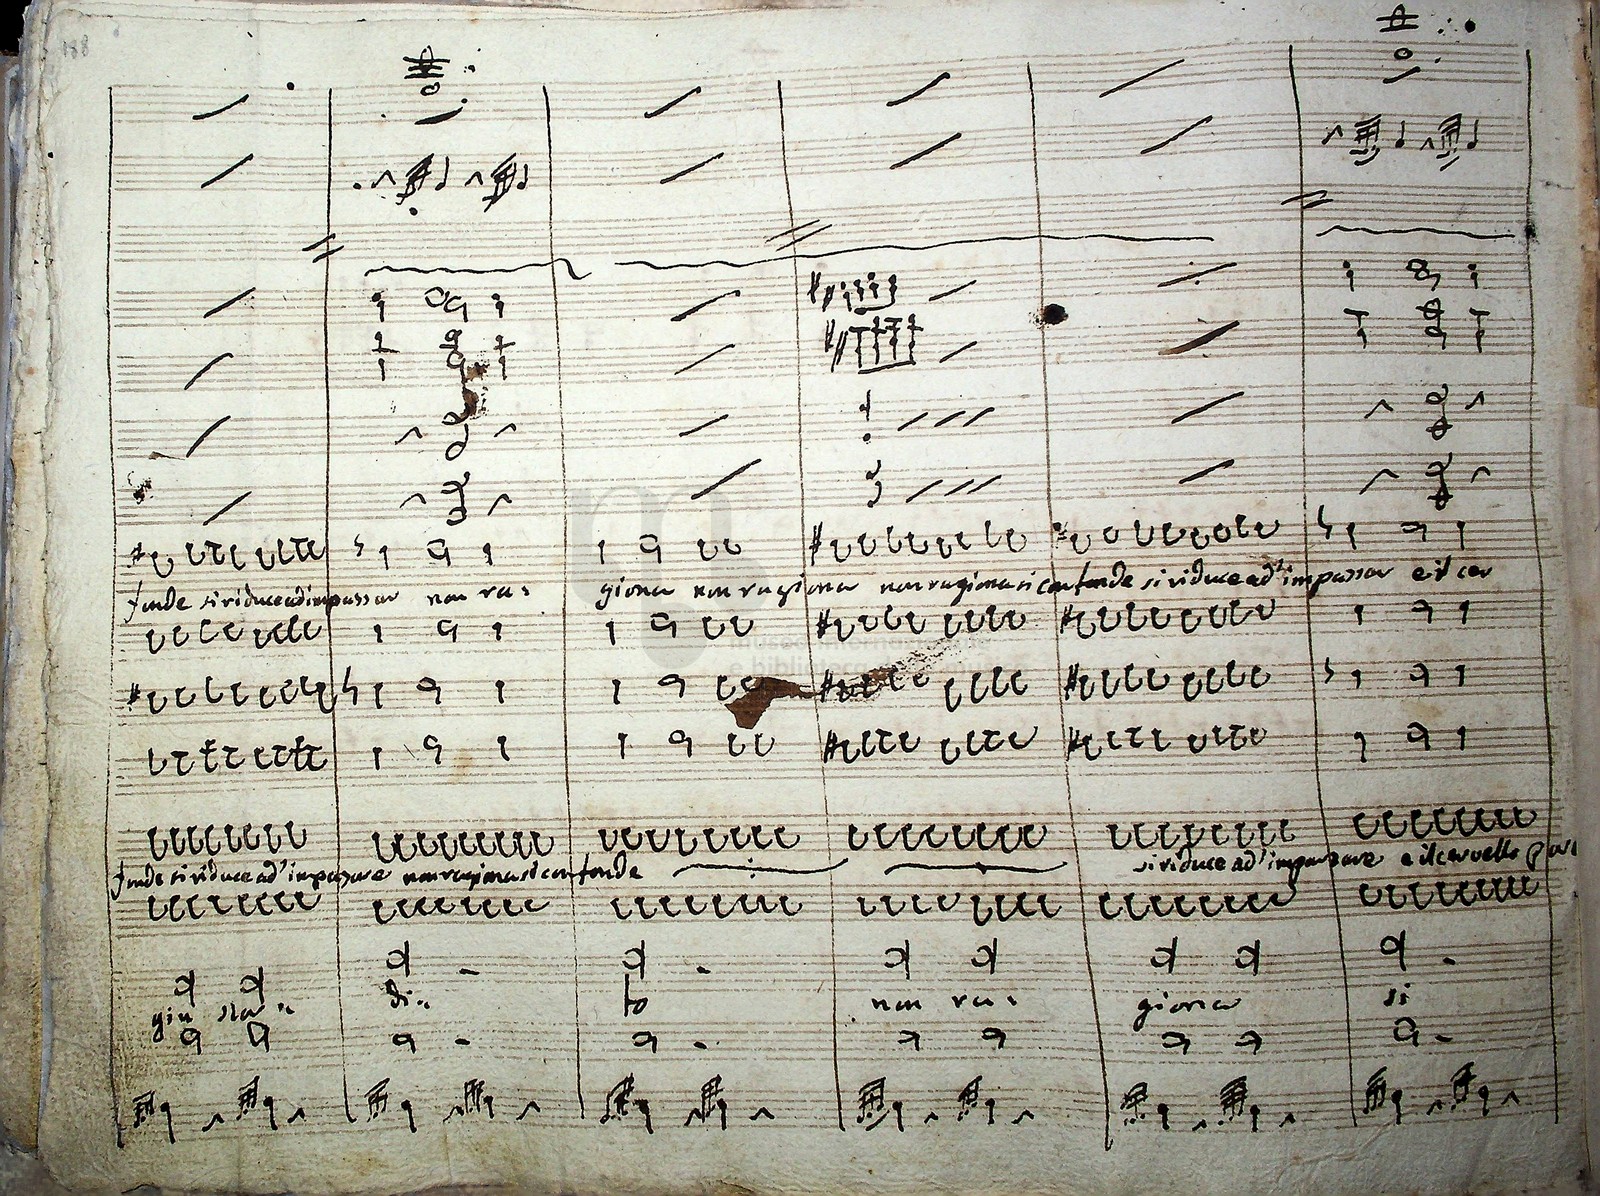 188
fonde si riduce ad impassar non ra:
giona non ragiona non ragiona si confonde si riduce ad' impassar e il cer
museo internazionale
e biblioteca della musica
fonde si riduce ad' impazzare non ragiona si confonde
si riduce ad' impazzare e il cervello
di:. to non ra:. giona si